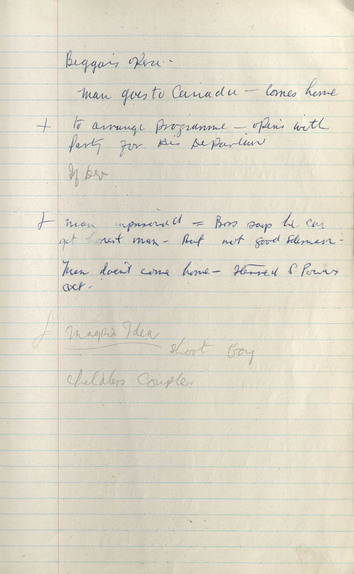 Beggars Opera.
Man goes to Canada – comes home
+ to arrange programme – opens with
Party for his Departure
If Dev
+ man imprisoned = Boss says he can
get honest man – But not good salesman.
Man doesn't come home –
act.
+ Magpie Idea
short Boy
Childless Couple